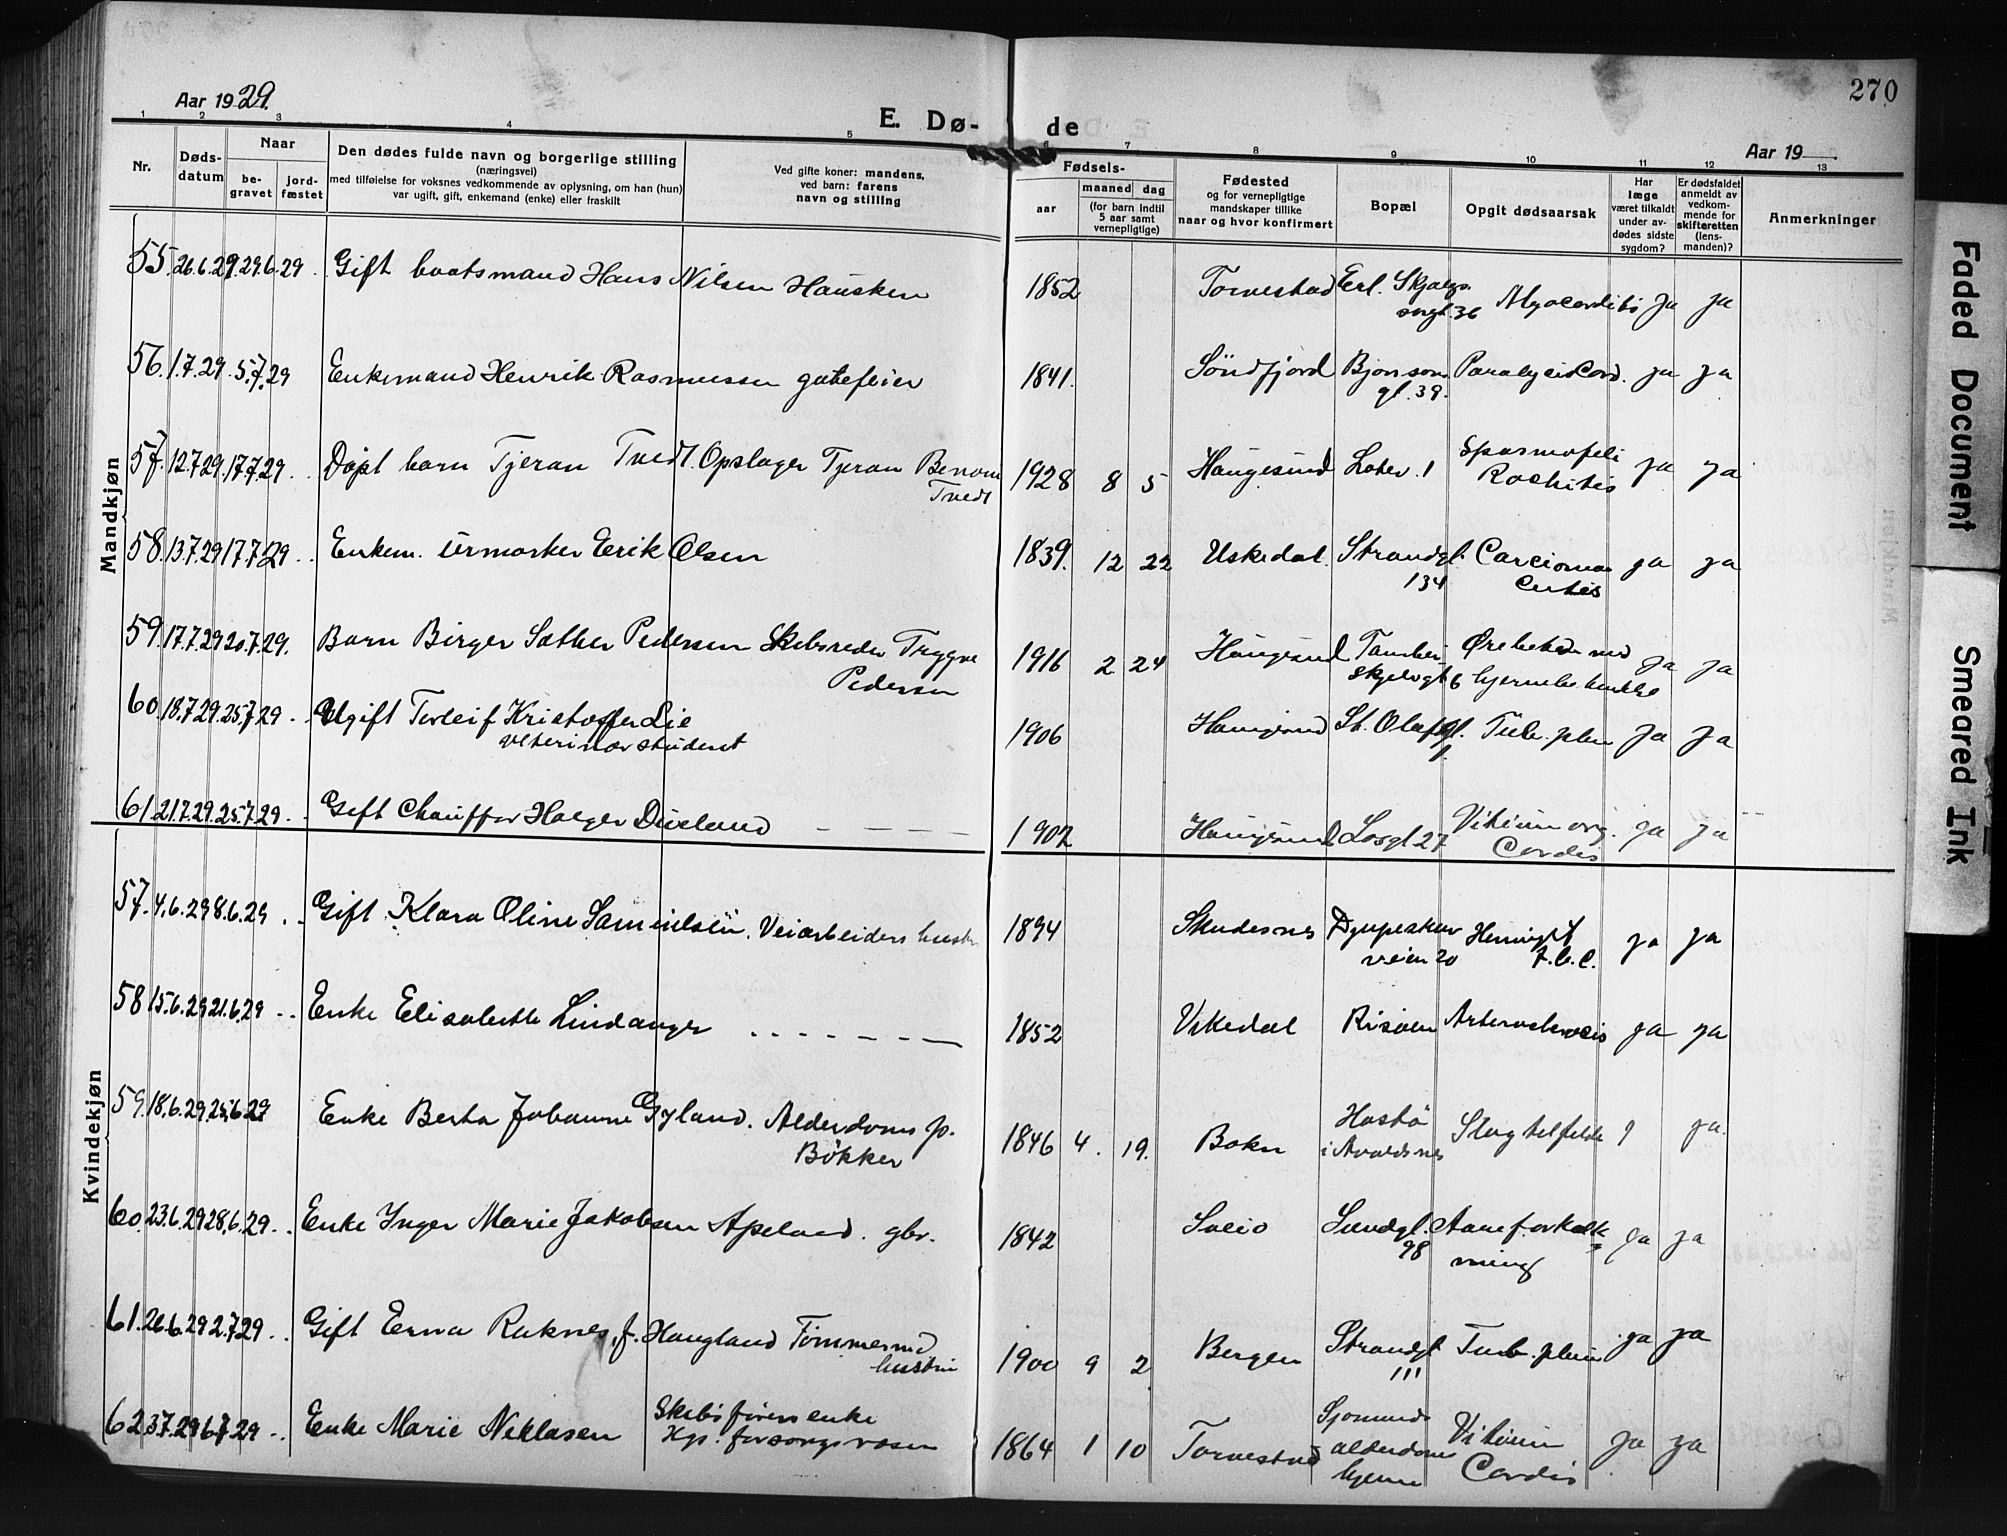 270
Aar 1929.
E. Dø- de
Aar 19
1 2 3 4 5 6 7 8 9 10 11 12 13
Nr.
Døds-datum
Naar
be-gravet
jord-fæstet
Den dødes fulde navn og borgerlige stilling
(næringsvei)
med tilføielse for voksnes vedkommende av oplysning, om han (hun)
var ugift, gift, enkemand (enke) eller fraskilt
Ved gifte koner: mandens,
ved barn: farens
navn og stilling
Fødsels-
aar
maaned dag
(for barn indtil
5 aar samt
vernepligtige)
Fødested
og for vernepligtige
mandskaper tillike
naar og hvor konfirmert
Bopæl
Opgit dødsaarsak
Har
læge
været tilkaldt
under av-
dødes sidste
sygdom?
Er dødsfaldet
anmeldt av
vedkom-
mende for
skifteretten
(lens-
manden)?
Anmerkninger
Mandkjøn
55. 26.6.29 29.6.29 Gift baatsmand Hans Nilsen Hausken 1852 Torvestad Erl. Skjalgs- Myocarditis ja ja
songt. 36
56. 1.7.29. 5.7.29 Enkemand Henrik Rasmussen gatefeier 1841. Söndfjord Bjönsons Paralysis Cord. ja ja
gt. 39.
57. 12.7.29. 17.7.29. Døpt barn Tjeran Tvedt. Opslager Tjeran 1928 8 5 Haugesund 1 Spasmofili ja ja
Tvedt Rachitis
58. 13.7.29 17.7.29 Enkem. Urmaker Erik Olsen 1839. 12 22 Uskedal Strandgt. Carcioma ja ja
134 Cutis
59. 17.7.29 20.7.29. Barn Birger Sæther Pedersen Skibsreder Trygve 1916 2 24 Haugesund med ja ja
Pedersen Skjelvgt 6 hjernebetendelse
60. 18.7.29. 25.7.29 Ugift Torleif Kristoffer Lie 1906 Haugesund St. Olafsgt. Tub. plm ja ja
veterinær student 1
61. 21.7.29. 25.7.29. Gift Chauffør Holger Dueland 1902 Haugesund 27 Vitium org. ja ja
Cordis
Kvindekjøn
57. 4.6.29 8.6.29 Gift Klara Oline Samuelsen. Veiarbeiders hustru 1894 Skudesnes Djupeskar ja ja
veien 20 t.b.c.
58 15.6.29 21.6.29 Enke Elisabeth Lindanger 1852 Vikedal Risöen Arterosclerosis ja ja
59. 18.6.29. 25.6.29 Enke Berta Johanne Gyland. Alderdoms p. 1846 4. 19. Bokn Hastö Slagtilfelde ? ja.
Bökker i Avaldsnes
60. 23.6.29 28.6.29. Enke Inger Marie Jakobsen Apeland. gbr. 1842 Sveio Sundgt. Aareforkalk= ja ja
98 ning
61. 26.6.29 2.7.29 Gift Erna Raknes, f. Haugland Tömmermd 1900 9 2 Bergen Strandgt Tub. plm ja ja
hustru 111
62 3.7.29 6.7.29 Enke Marie Neklasen Skibsförers enke 1864 1 10 Torvestad Sjömands Vitium ja ja
Hgs. forsorgsvæsen alderdoms Cordis
hjem
Faded Document
Smeared Ink